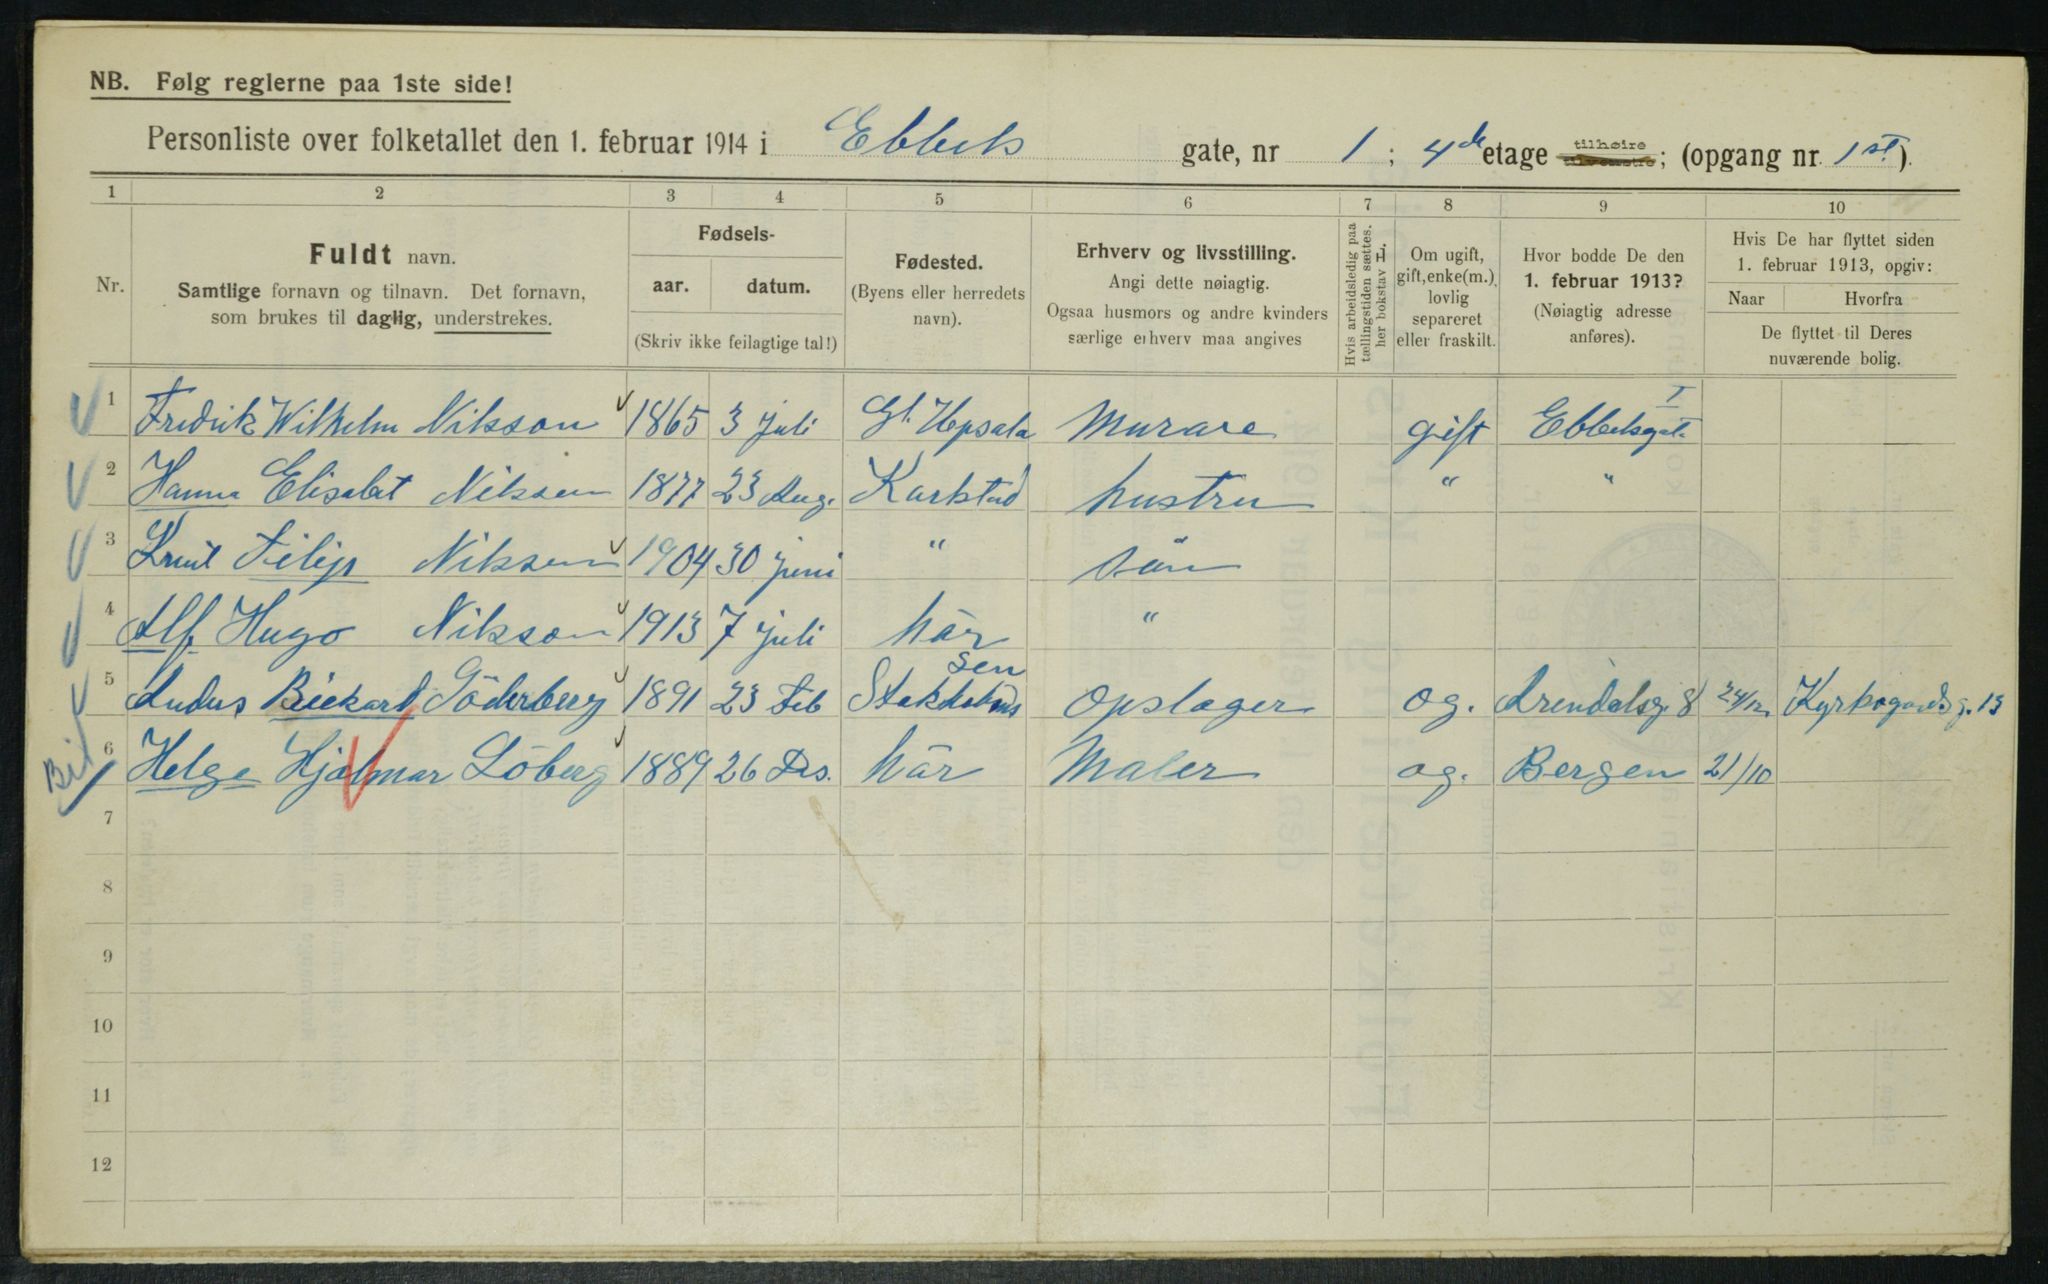 NB. Følg reglerne paa 1ste side!
Personliste over folketallet den 1. februar 1914 i Ebbels gate, nr 1 ; 4de etage tilhøire ; (opgang nr. 1st).
1 2 3 4 5 6 7 8 9 10
Nr.
Fuldt navn.
Samtlige fornavn og tilnavn. Det fornavn,
som brukes til daglig, understrekes.
Fødsels-
aar. datum.
(Skriv ikke feilagtige tal!)
Fødested.
(Byens eller herredets
navn).
Erhverv og livsstilling.
Angi dette nøiagtig.
Ogsaa husmors og andre kvinders
særlige erhverv maa angives
Hvis arbeidsledig paa
tællingstiden sættes.
her bokstav L.
Om ugift,
gift, enke(m.),
lovlig
separeret
eller fraskilt.
Hvor bodde De den
1. februar 1913?
(Nøiagtig adresse
anføres).
Hvis De har flyttet siden
1. februar 1913, opgiv:
Naar Hvorfra
De flyttet til Deres
nuværende bolig.
1 Fredrik Wilhelm Nilsson 1865 3 juli Gl. Upsala Murare gift Ebbelsgate 1
2 Hanna Elisabet Nilsson 1877 23 Aug. Karlstad hustru " "
3 Knut Filip Nilsson 1904 30 juni " sån
4 Alf Hugo Nilsson 1913 7 juli här "
5 Rickard Söderberg 1891 23 Feb Stokholm opslager og. Arendalsg. 8 24/12 Kyrkogardsg. 13
6 Helge Hjalmar Löberg 1889 26 Des. här Maler og. Bergen 21/10
7
8
9
10
11
12